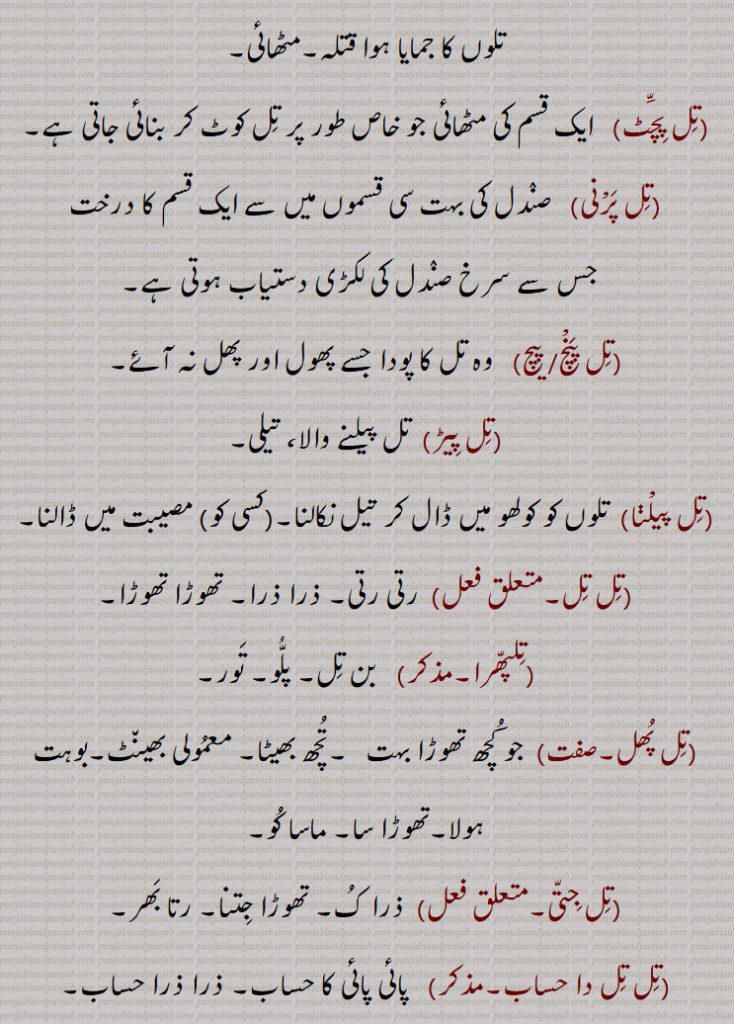 تلوں کا جمایا ہوا قتلہ۔مٹھائی۔
(تِل پِچِّٹ) ایک قسم کی مٹھائی جو خاص طور پر تِل کوٹ کر بنائی جاتی ہے۔
(تِل پَرْنی) صنْدل کی بہت سی قسموں میں سے ایک قسم کا درخت
جس سے سرخ صنْدل کی لکڑی دستیاب ہوتی ہے۔
(تِل پَنْج/پیج) وہ تل کا پودا جسے پھول اور پھل نہ آئے۔
(تِل پِیڑ) تل پیلنے والا، تیلی۔
(تِل پیلْنا) تلوں کو کولھو میں ڈال کر تیل نکالنا۔(کسی کو) مصیبت میں ڈالنا۔
(تِل تِل۔متعلق فعل) رتی رتی۔ ذرا ذرا۔ تھوڑا تھوڑا۔
(تِلپھّرا۔مذکر) بن تِل۔ پلُّو۔ تَور۔
(تِل پُھل۔صفت) جو کُچھ تھوڑا بہت ۔تُچھ بھیٹا۔ معمُولی بھینٹ۔بوہت
ہولا۔تھوڑا سا۔ ماسا کُو۔
(تِل جِتّی۔متعلق فعل) ذرا کُ۔ تھوڑا جِتنا۔ رتا بَھر۔
(تِل تِل دا حساب۔مذکر) پائی پائی کا حساب۔ ذرا ذرا حساب۔